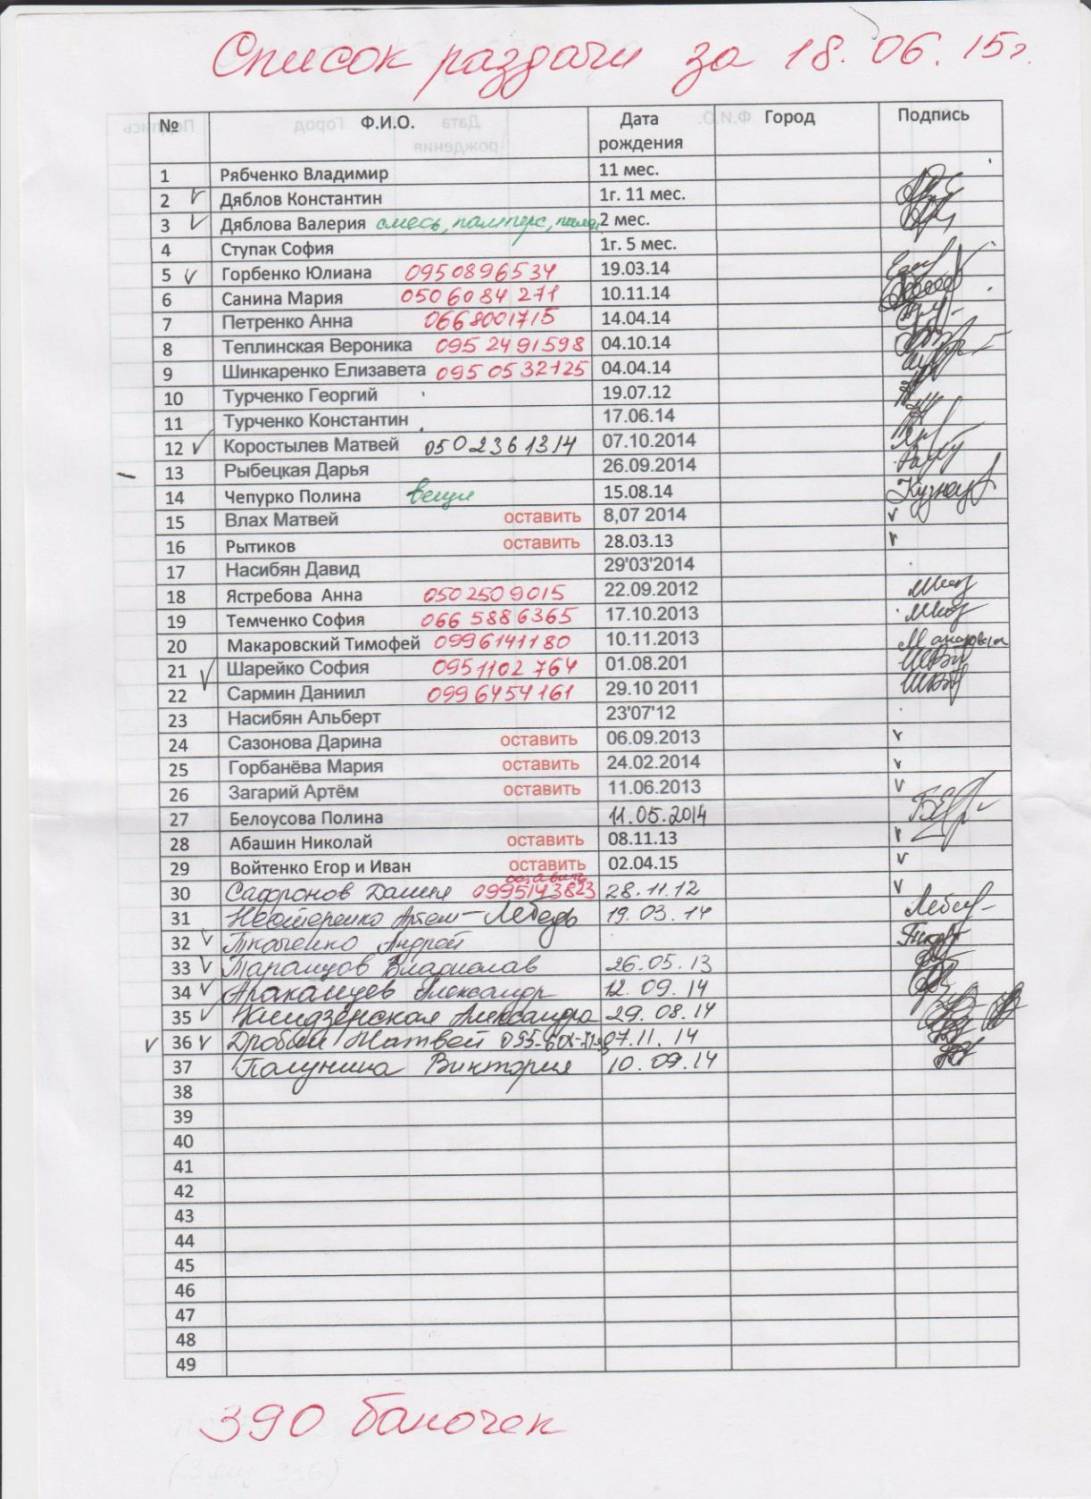 Список раздачи за 18.06.15г.
№ Ф.И.О. Дата рождения Город Подпись
1 Рябченко Владимир 11 мес.
2 Дяблов Константин 1г. 11 мес.
3 Дяблова Валерия смесь, памперс, 2 мес.
4 Ступак София 1г. 5 мес.
5 Горбенко Юлиана 0950896534 19.03.14
6 Санина Мария 0506084271 10.11.14
7 Петренко Анна 0668001715 14.04.14
8 Теплинская Вероника 095 2491598 04.10.14
9 Шинкаренко Елизавета 0950532125 04.04.14
10 Турченко Георгий 19.07.12
11 Турченко Константин 17.06.14
12 Коростылев Матвей 0502361314 07.10.2014
13 Рыбецкая Дарья 26.09.2014
14 Чепурко Полина вещи 15.08.14
15 Влах Матвей оставить 8,07 2014
16 Рытиков оставить 28.03.13
17 Насибян Давид 29'03'2014
18 Ястребова Анна 0502509015 22.09.2012
19 Темченко София 066 5886365 17.10.2013
20 Макаровский Тимофей 0996141180 10.11.2013
21 Шарейко София 0951102764 01.08.201
22 Сармин Даниил 0996454161 29.10 2011
23 Насибян Альберт 23'07'12
24 Сазонова Дарина оставить 06.09.2013
25 Горбанёва Мария оставить 24.02.2014
26 Загарий Артём оставить 11.06.2013
27 Белоусова Полина 11.05.2014
28 Абашин Николай оставить 08.11.13
29 Войтенко Егор и Иван оставить 02.04.15
30 Сафронов 0995143823 28.11.12
31 Нестеренко Артем - Лебедь 19.03.14
32 Ткаченко Андрей
33 Таранцов Владислав 26.05.13
34 Араканцев Александр 12.09.14
35 Александра 29.08.14
36 Матвей 07.11.14
37 Палунина Виктория 10.09.14
38
39
40
41
42
43
44
45
46
47
48
49
390 баночек